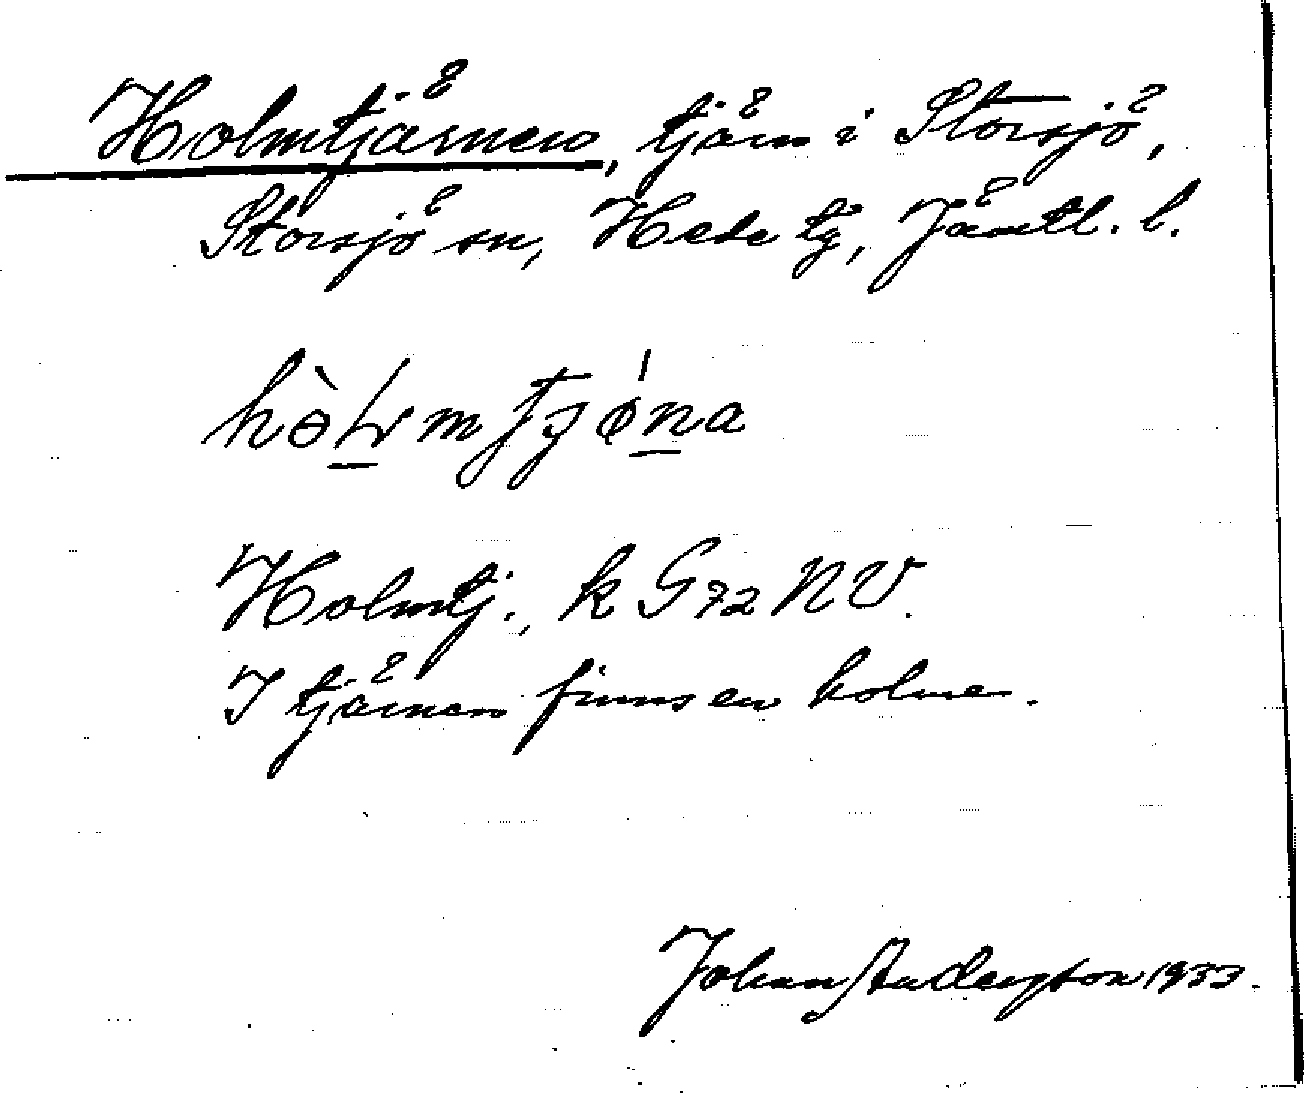 Holmtjärnen, tjärn i Storsjö,
Storsjö sn, Hede tg, Jämtl. l.
Holmtj., k G72 NV.
I tjärnen finns en holme.
Johan Anderzson 1933.